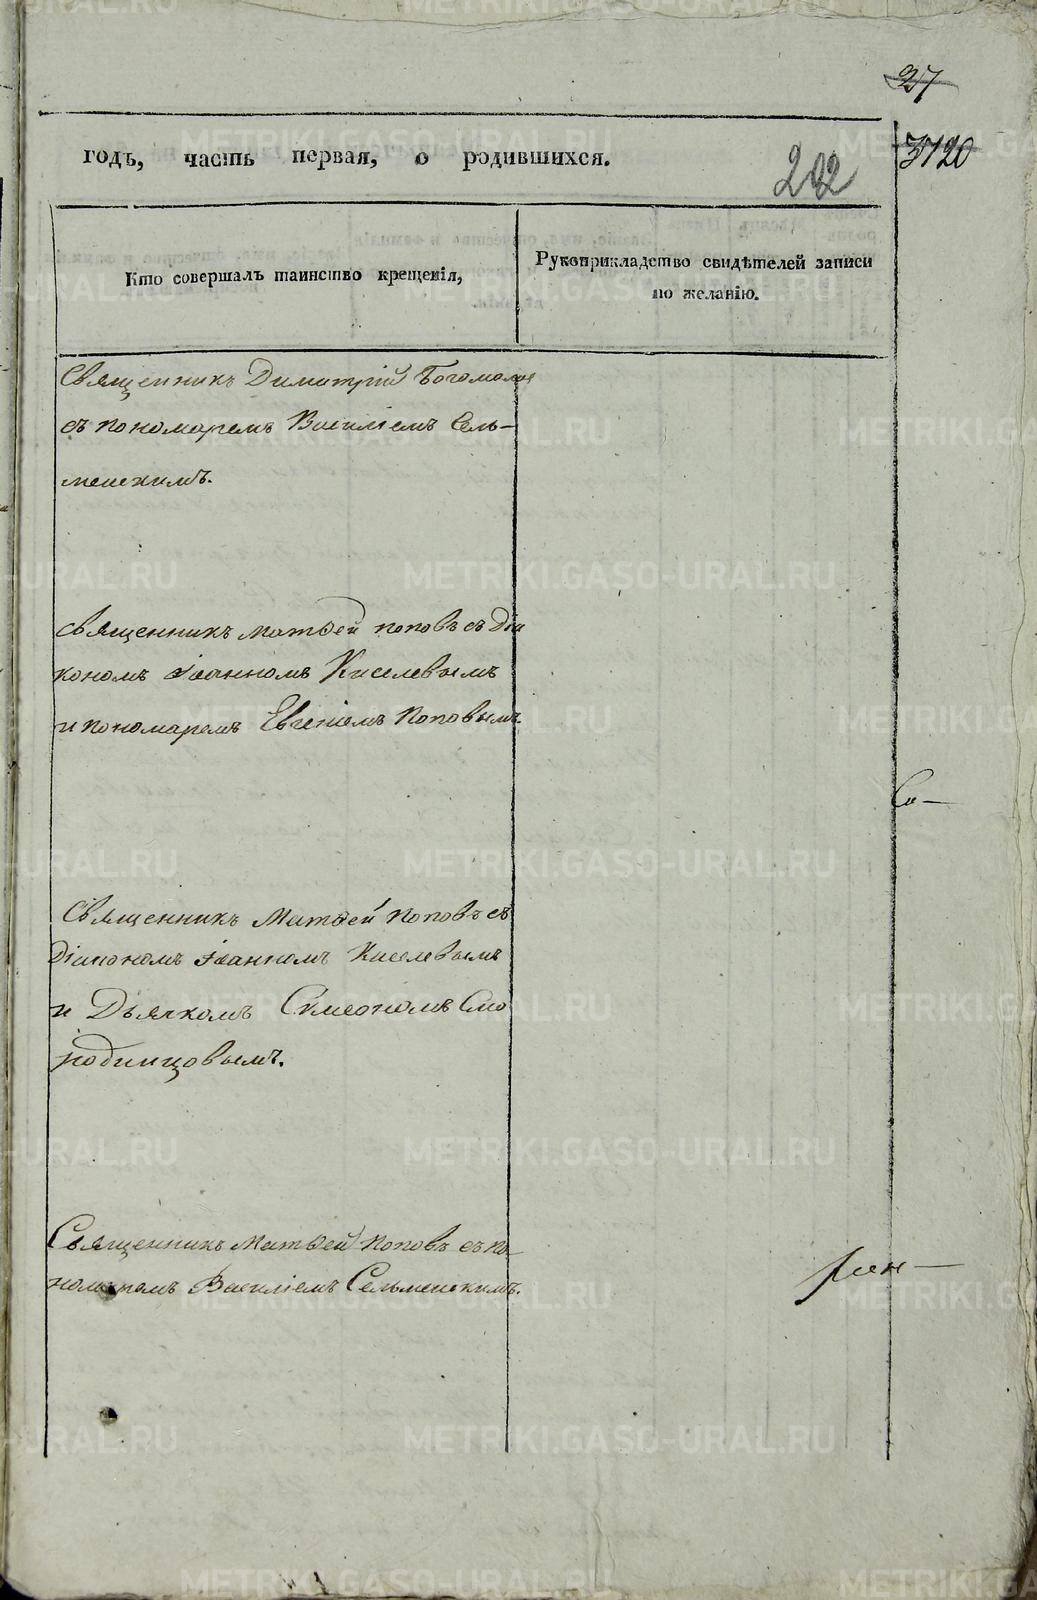 27
годъ, часть первая, о родившихся.
202
3120
Кто совершалъ таинство крещенія,
Рукоприкладство свидѣтелей записи
по желанію.
Священникъ Димитрій Богомолов
съ пономаремъ Василіемъ Сель-
менскимъ.
священникъ Матѳей Поповъ съ Діа
кономъ Іоанномъ Киселевымъ
и пономаремъ Евгеніемъ Поповымъ.
Священникъ Матѳей Поповъ съ
Діакономъ Іоанномъ Киселевымъ
и Дьячкомъ Симеономъ Смо
родинцовымъ.
Священникъ Матѳей Поповъ съ по-
номаремъ Василіемъ Сельменскимъ.
METRIKI.GASO-URAL.RU